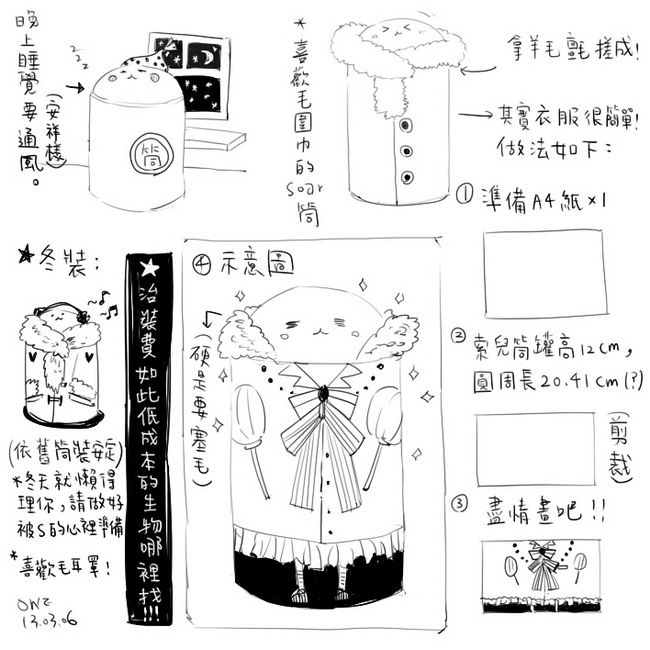 晚上睡覺要通風。
(安祥樣)
zzz
筒
*喜歡毛圍巾的
Soar筒
拿羊毛氈搓成!
其實衣服很簡單!
做法如下:
① 準備A4紙×1
② 索兒筒罐高12cm,
圓周長20.41cm(?)
(剪裁)
③ 盡情畫吧!!
④ 示意圖
(硬是要塞毛)
★治裝費如此低成本的生物哪裡找!!!
★冬裝:
(依舊筒裝安定)
*冬天就懶得
理你,請做好
被S的心裡準備
*喜歡毛耳罩!
13.03.06